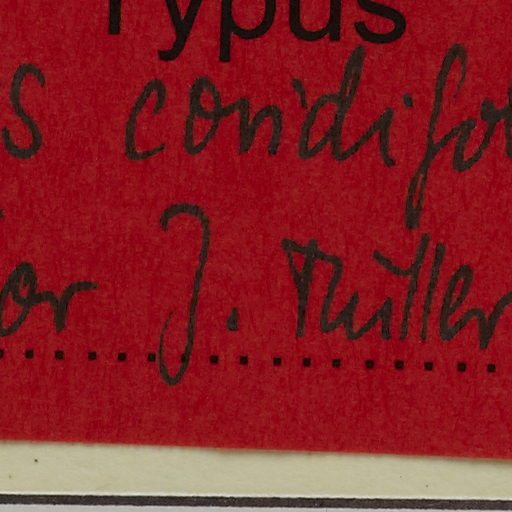 Typus
s cordifol
or J. Müller